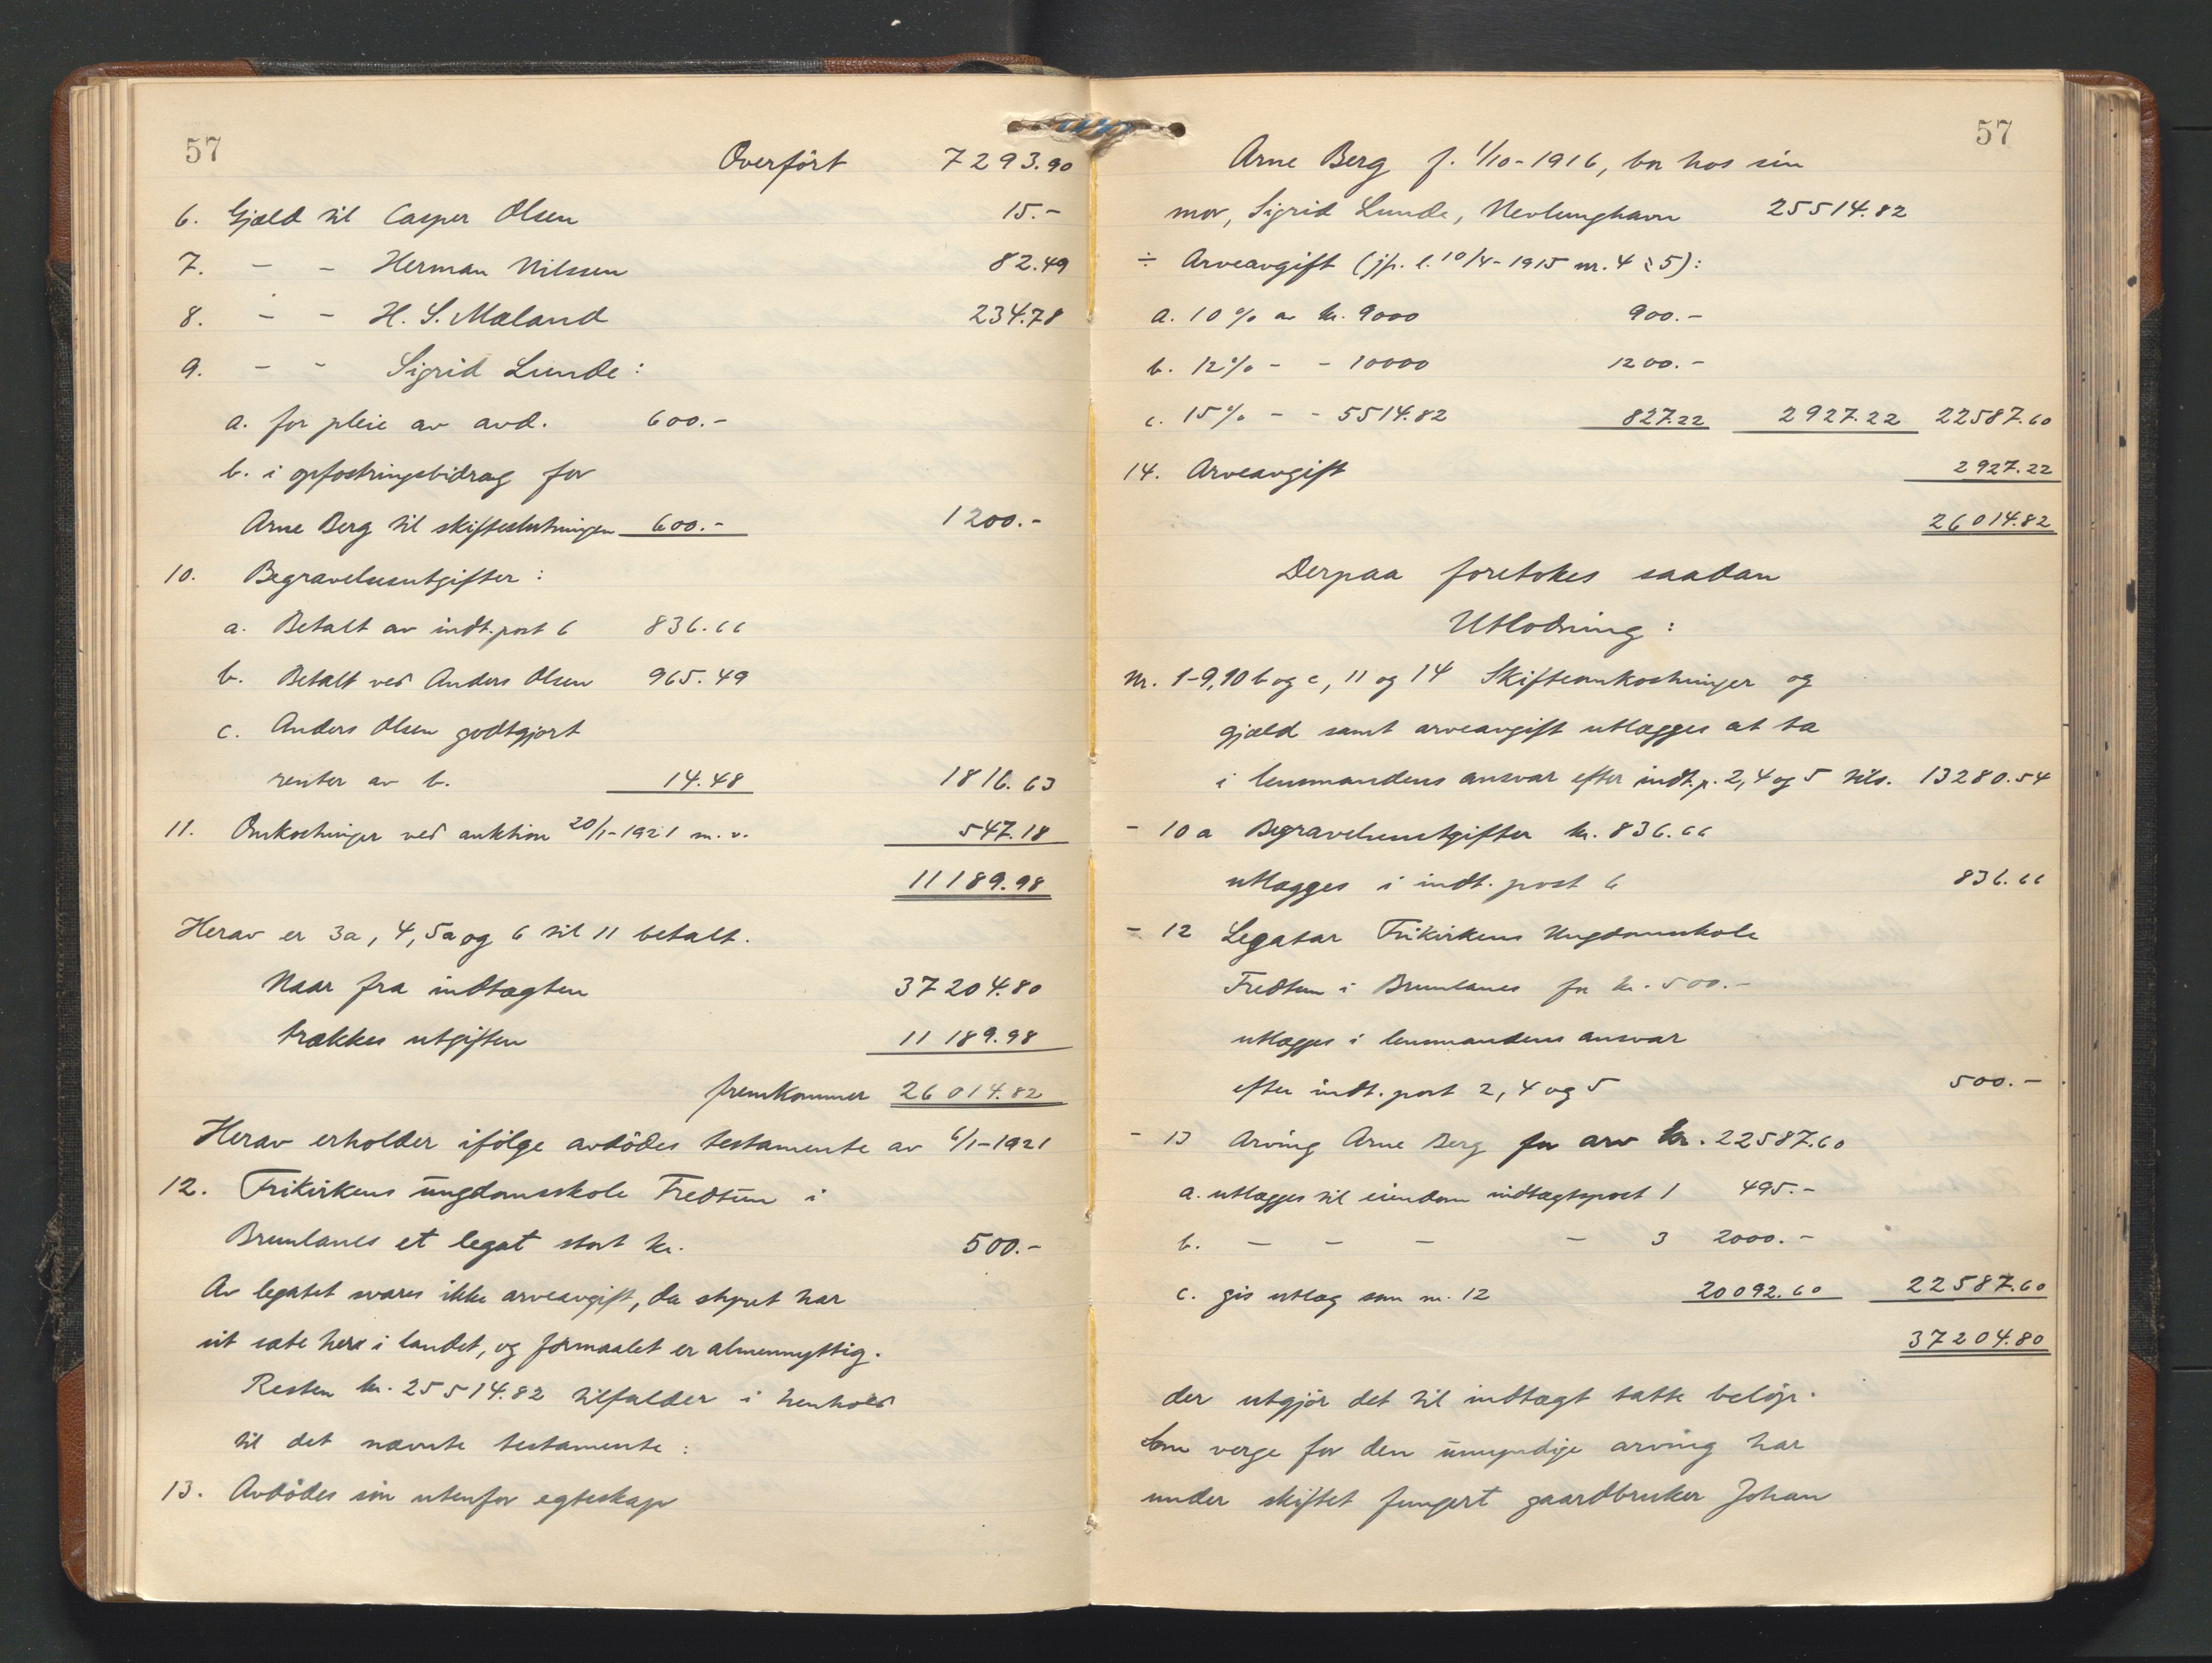 57
Overført 7293.90
6. Gjæld til Casper Olsen 15.-
7. - - Herman Nilssen 82.49
8. - - H. S. Maland 234.78
9. - - Sigrid Lunde:
a. for pleie av avd. 600.-
b. i opfostringsbidrag for
Arne Berg til skifteslutningen 600.- 1200.-
10. Begravelsesutgifter:
a. Betalt av indt. post 6 836.66
b. Betalt ved Anders Olsen 965.49
c. Anders Olsen godtgjort
renter av b. 14.48 1816.63
11. Omkostninger ved auktion 20/1-1921 m.v. 547.18
11189.98
Herav er 3a, 4, 5a og 6 til 11 betalt.
Naar fra indtægten 37204.80
trækkes utgiften 11189.98
fremkommer 26014.82
Herav erholder ifølge avdødes testamente av 6/1-1921
12. Frikirkens ungdomsskole Fredtun i
Brunlanes et legat stort kr. 500.-
Av legatet svares ikke arveavgift, da styret har
sit sæte her i landet, og formaalet er almennyttig.
Resten kr. 25514.82 tilfalder i henhold
til det nævnte testamente:
13. Avdødes søn utenfor egteskap
57
Arne Berg f. 1/10-1916, bor hos sin
mor, Sigrid Lunde, Nevlunghavn 25514.82
÷ Arveavgift (jfr. l. 10/4-1915 nr. 4 § 5):
a. 10 % av kr. 9000 900.-
b. 12% - - 10000 1200.-
c. 15% - - 5514.82 827.22 2927.22 22587.60
14. Arveavgift 2927.22
26014.82
Derpaa foretokes saadan
Utlodning:
Nr. 1-9, 10 b og c, 11 og 14 Skifteomkostninger og
gjæld samt arveavgift utlægges at ta
i lensmandens ansvar efter indt. p. 2, 4 og 5 tils. 13280.54
- 10 a Begravelsesutgifter kr. 836.66
utlægges i indt. post 6 836.66
- 12 Legatar Frikirkens Ungdomsskole
Fredtun i Brunlanes for kr. 500.-
utlægges i lensmandens ansvar
efter indt. post 2, 4 og 5 500.-
- 13 Arving Arne Berg for arv kr. 22587.60
a. utlægges til eiendom indtægtspost 1 495.-
b. - - - - 3 2000.-
c. gis utlæg som nr. 12 20092.60 22587.60
37204.80
der utgjør det til indtægt tatte beløp.
Som verge for den umyndige arving har
under skiftet fungert gaardbruker Johan